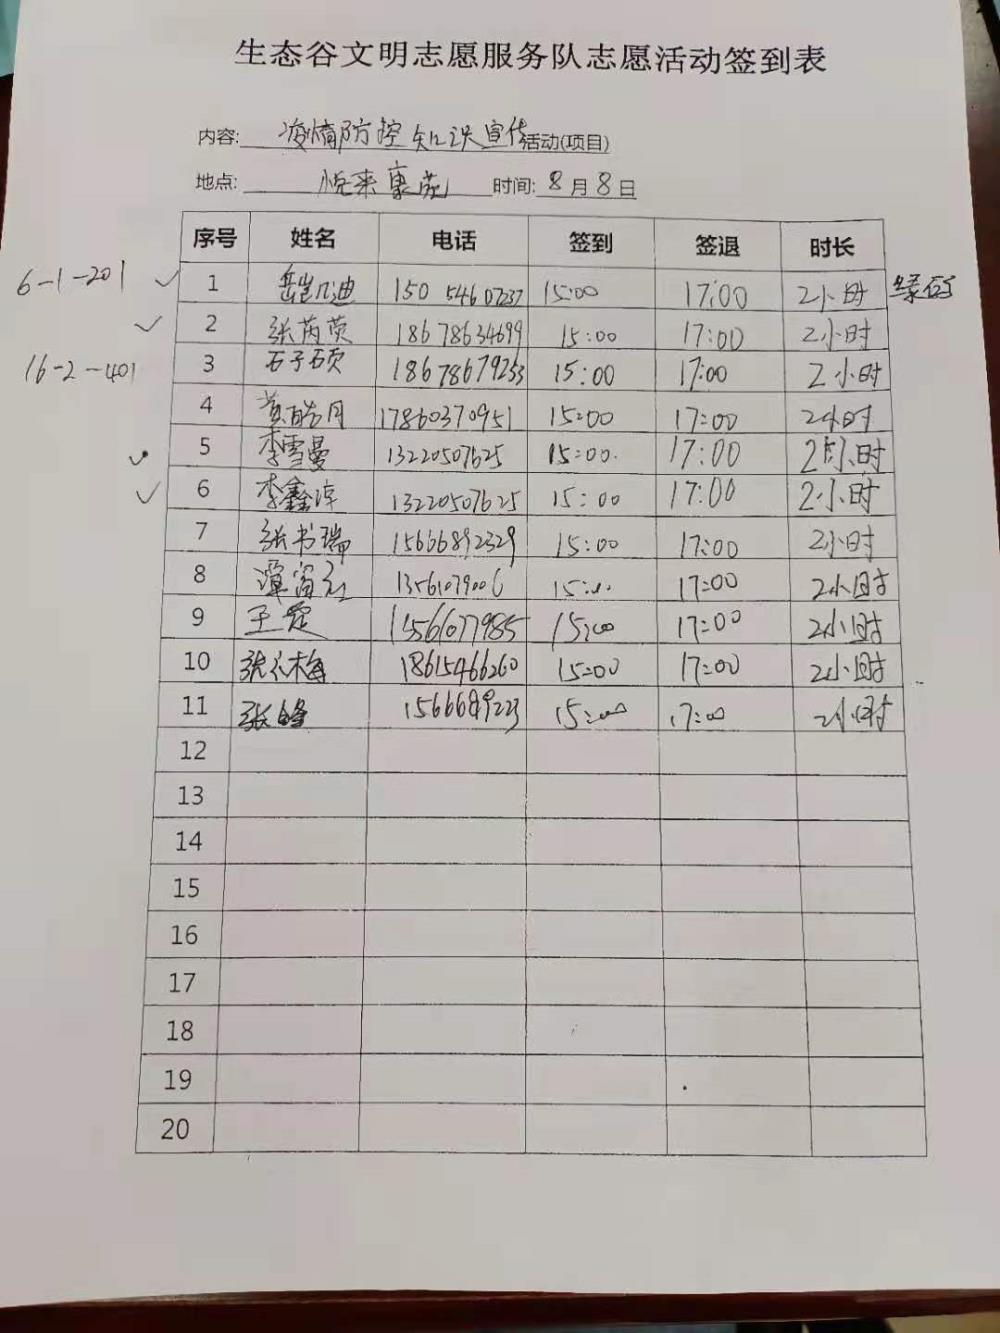 生态谷文明志愿服务队志愿活动签到表
内容: 疫情防控知识宣传活动(项目)
地点: 悦来康苑 时间: 8月8日
序号 姓名 电话 签到 签退 时长
6-1-201 ✓ 1 150 54607237 15:00 17:00 2小时 绿码
✓ 2 张芮荧 18678634699 15:00 17:00 2小时
16-2-401 3 石子硕 18678679253 15:00 17:00 2小时
4 黄皓月 17860370951 15:00 17:00 2小时
✓ 5 李雪曼 13220507625 15:00. 17:00 2小时
✓ 6 李鑫淳 13220507625 15:00 17:00 2小时
7 张书瑞 15666892329 15:00 17:00 2小时
8 1356107900 15: 17:00 2小时
9 王 1561077985 15:00 17:00 2小时
10 张 梅 18615466260 15:00 17:00 2小时
11 张峰 15:00 17:00 2小时
12
13
14
15
16
17
18
19
20